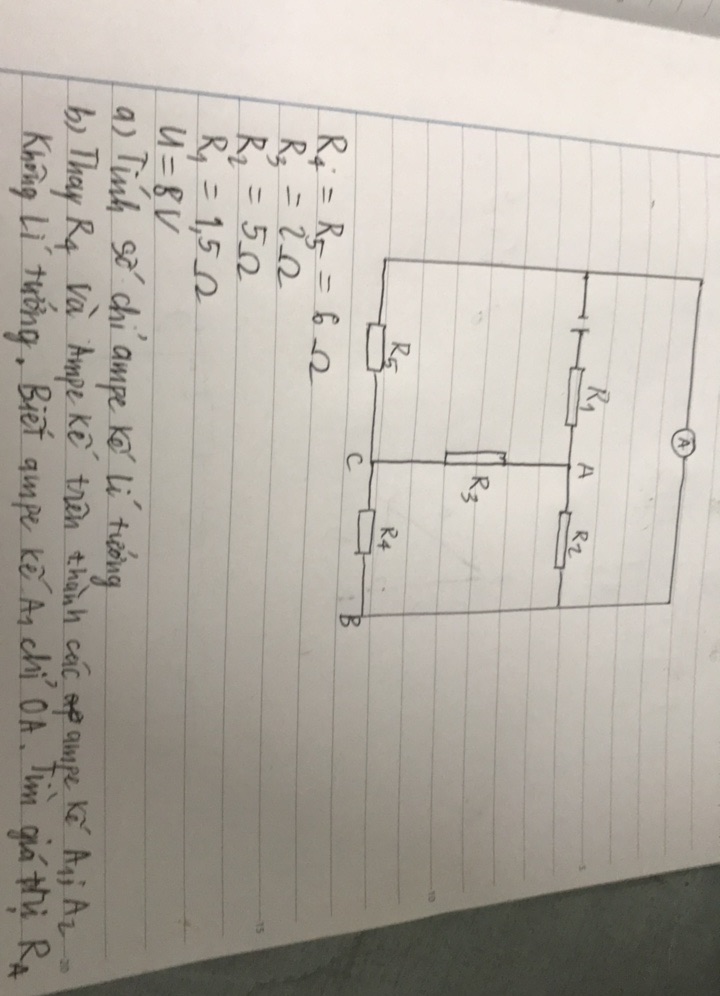 A
R₁
A
R₂
R₃
R₅
C
R₄
B
R₄ = R₅ = 6 Ω
R₃ = 2 Ω
R₂ = 5 Ω
R₁ = 1,5 Ω
U = 8V
a) Tính số chỉ ampe kế lí tưởng
b) Thay R₄ và Ampe kế trên thành các ampe kế A₁; A₂
không lí tưởng. Biết ampe kế A₁ chỉ 0A. Tìm giá trị R_A
5
10
15
20